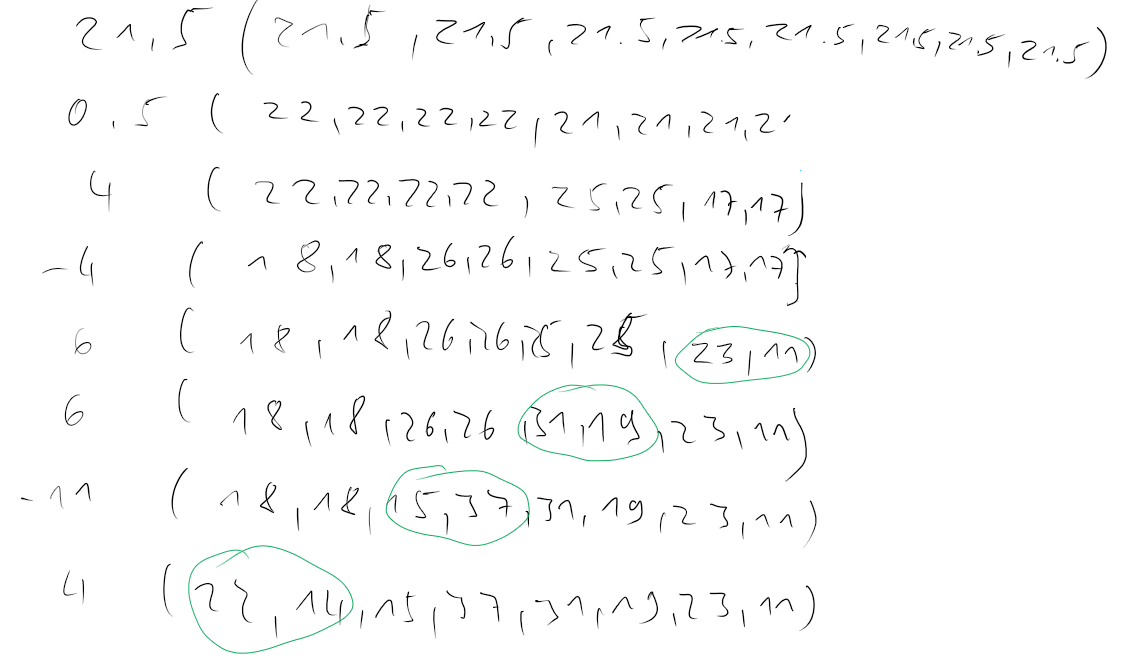 21,5 (21.5,21,5,21.5,21.5,21.5,21.5,21.5,21.5)
0.5 (22,22,22,22,21,21,21,21
4 (22,22,22,22,25,25,17,17)
-4 (18,18,26,26,25,25,17,17)
6 (18,18,26,26,25,25,23,11)
6 (18,18,26,26,31,19,23,11)
-11 (18,18,15,37,31,19,23,11)
4 (22,14,15,37,31,19,23,11)